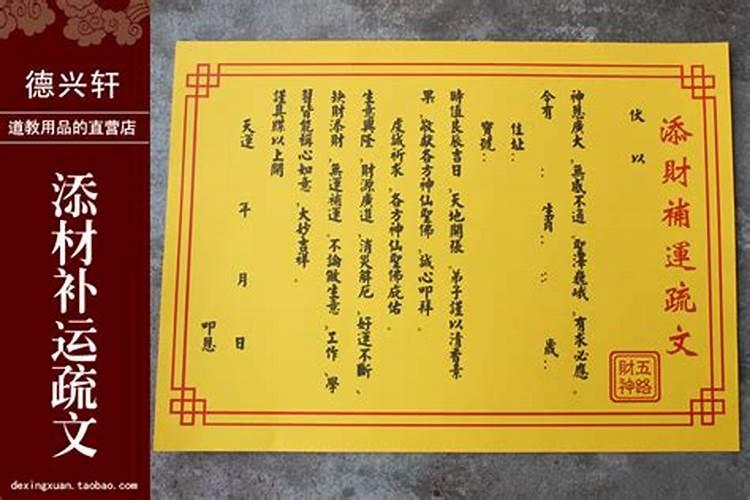 德兴轩
道教用品的直营店
添材补运疏文
dexingxuan.taobao.com
添財補運疏文
五路財神
伏以
神恩廣大，無感不通，聖澤巍峨，有求必應。
今有：生肖：：歲，
住址：
寶號：
時值良辰吉日，天地開張，弟子謹以清香素
果，敬獻各方神仙聖佛，誠心叩拜。
虔誠祈求，各方神仙聖佛庇佑。
生意興隆，財源廣進，消災解厄，好運不斷、
缺財添財，無運補運，不論做生意，工作，學
習皆能稱心如意，大妙吉祥。
謹具牒以上聞
天運年月日
叩恩